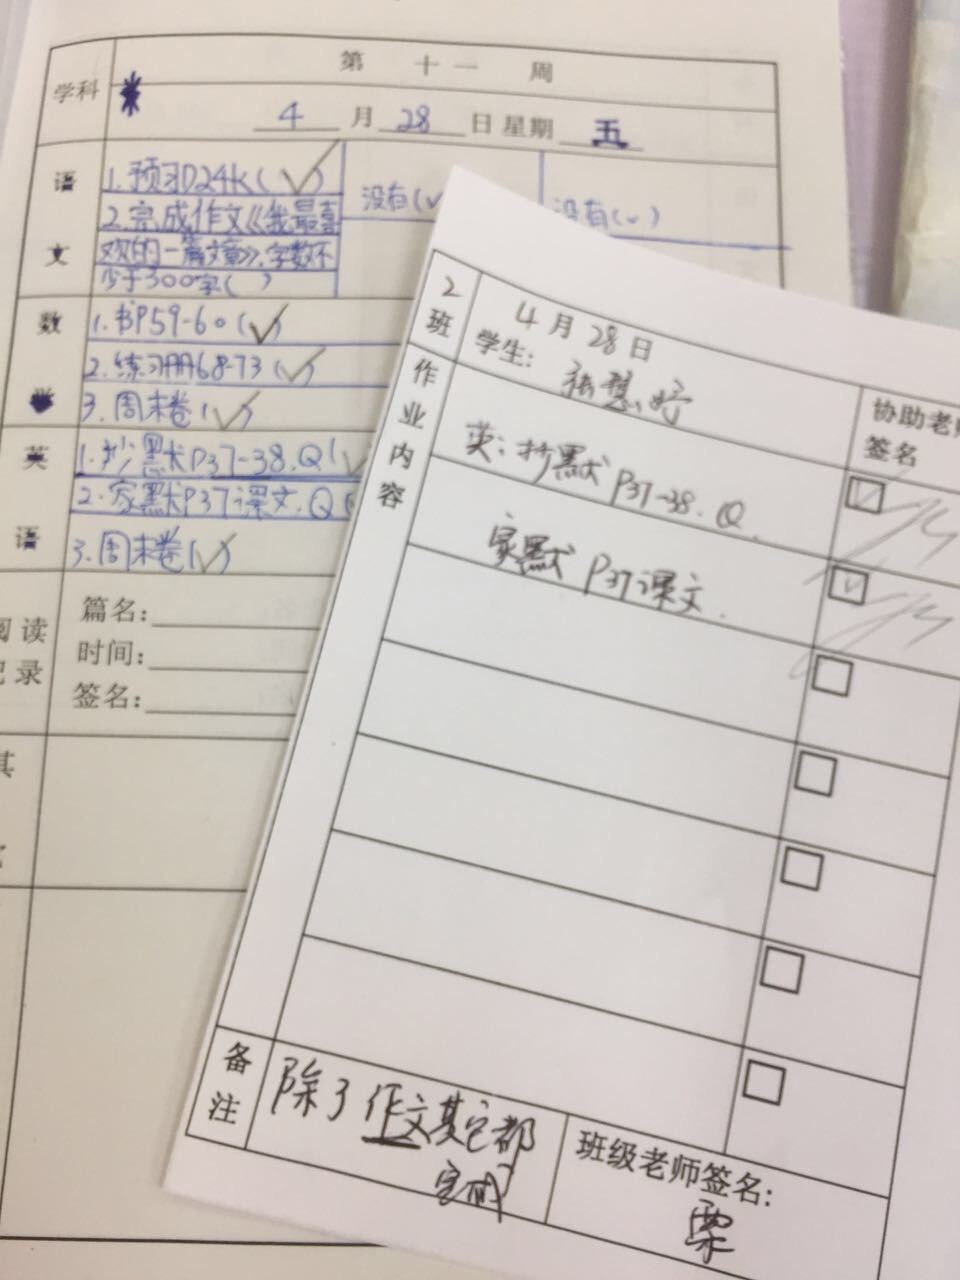 学科
第 十一 周
4 月 28 日 星期 五
语文
1.预习D24K(✓)
2.完成作文《我最喜
欢的一篇文章》,字数不
少于300字( )
没有(✓
没有(✓)
数学
1.书P59-60(✓)
2.练习册68-73(✓)
3.周末卷(✓)
英语
1.抄默P37-38.Q(✓
2.家默P37课文.Q(
3.周末卷(✓)
阅读
记录
篇名:
时间:
签名:
其
2班
4月28日
学生:
协助老师
签名
作业内容
英:抄默P37-38.Q.
家默P37课文.
备注
除了作文其它都
完成
班级老师签名:
栗